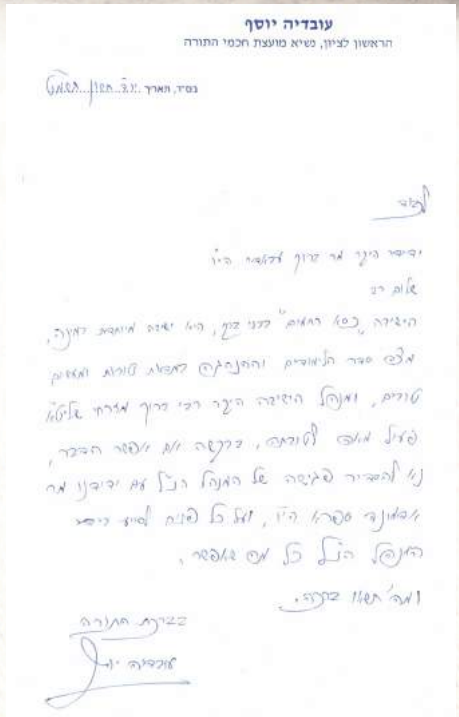 עובדיה יוסף
הראשון לציון, נשיא מועצת חכמי התורה
בס"ד, תאריך י"ג חשון תשמ"ט
לכבוד
ידידי היקר מר ברוך הי"ו
שלום רב
הישיבה "כסא רחמים" בבני ברק, היא ישיבה מיוחדת במינה,
מצד סדר הלימודים וההנהגה במדות טובות ומעשים
טובים, ומנהל הישיבה היקר רבי ברוך מזרחי שליט"א
פעיל מאד לטובתה, בבקשה אם אפשר הדבר,
נא להסדיר פגישה של המנהל הנ"ל עם ידידנו מר
אדמונד ספרא הי"ו, ועל כל פנים לסייע בידי
המנהל הנ"ל כל מה שאפשר,
ומה' תשאו ברכה.
בברכת התורה
עובדיה יוסף